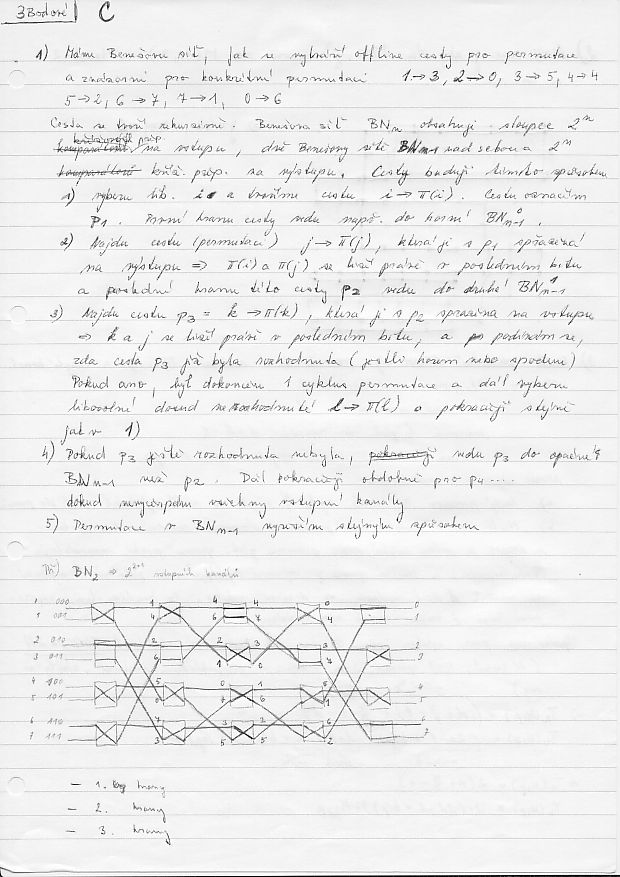 3Bodové C
1) Máme Benešovu síť, jak se vytváří offline cesty pro permutace
a znázorni pro konkrétní permutaci 1→3, 2→0, 3→5, 4→4
5→2, 6→7, 7→1, 0→6
Cesta se tvoří rekurzivně. Benešova síť BNn obsahuje sloupec 2^n
křížových přep.
komparátorů na vstupu, dvě Benešovy sítě BNn-1 nad sebou a 2^n
komparátorů kříž. přep. na výstupu. Cesty buduji tímto způsobem
1) vyberu lib. i a tvoříme cestu i→π(i). Cestu označím
P1. První hranu cesty vedu např. do horní BN⁰n-1.
2) Najdu cestu (permutaci) j→π(j), která je s p1 spřažená
na výstupu ⇒ π(i) a π(j) se liší právě v posledním bitu
a poslední hranu této cesty p2 vedu do druhé BN¹n-1
3) Najdu cestu p3 = k→π(k), která je s p2 spražena na vstupu
⇒ k a j se liší právě v posledním bitu, a podívám se,
zda cesta p3 již byla rozhodnuta (jestli horem nebo spodem)
Pokud ano, byl dokončen 1 cyklus permutace a dál vyberu
libovolně dosud nerozhodnuté l→π(l) a pokračuji stejně
jak v 1)
4) Pokud p3 ještě rozhodnuta nebyla, pokračuji vedu p3 do opačné
BNn-1 než p2. Dál pokračuji obdobně pro p4....
dokud nevyčerpám všechny vstupní kanály
5) Permutace v BNn-1 vyřeším stejným způsobem
Př) BN2 ⇒ 2^2+1 vstupních kanálů
000 1 4 4 0 0
1 001 4 6 7 4 1
2 010 2 2 3 3 2
3 011 6 1 7 3
4 100 5 0 1 4
5 101 0 7 6 1 5
6 110 7 3 2 6 6
7 111 3 5 5 2 7
– 1. hrany
– 2. hrany
– 3. hrany